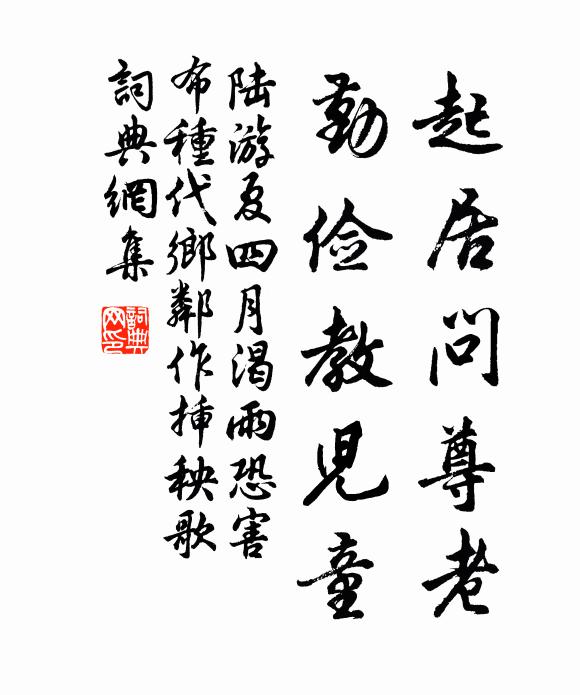 起居问尊老
勤俭教児童
陆游夏四月渴雨恐害
布種代鄉鄰作揷秧歌
詞典網集
詞典
网印